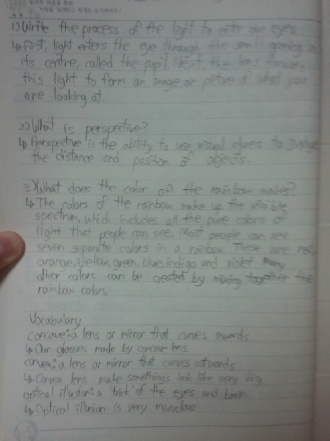 1) Write the process of the light to enter our eyes
↳ First, light enters the eye through the small opening in
its centre, called the pupil. Next the lens focuses
this light to form an image or picture of what you
are looking at
2) What is perspective?
↳ Perspective is the ability to use visual clues to judge
the distance and position of objects.
3) What does the color of the rainbow makes?
↳ The colors of the rainbow make up the visible
spectrum, which includes all the pure colors of
light that people can see. Most people can see
seven separate colors in a rainbow. These are red
orange, yellow, green, blue, indigo and violet many
other colors can be created by mixing together the
rainbow colors.
Vocabulary
concave: a lens or mirror that curves inwards
↳ Our glasses made by concave lens
convex: a lens or mirror that curves outwards
↳ Convex lens make somethings look like very big
optical illusion: a 'trick' of the eyes and brain
↳ Optical illusion is very